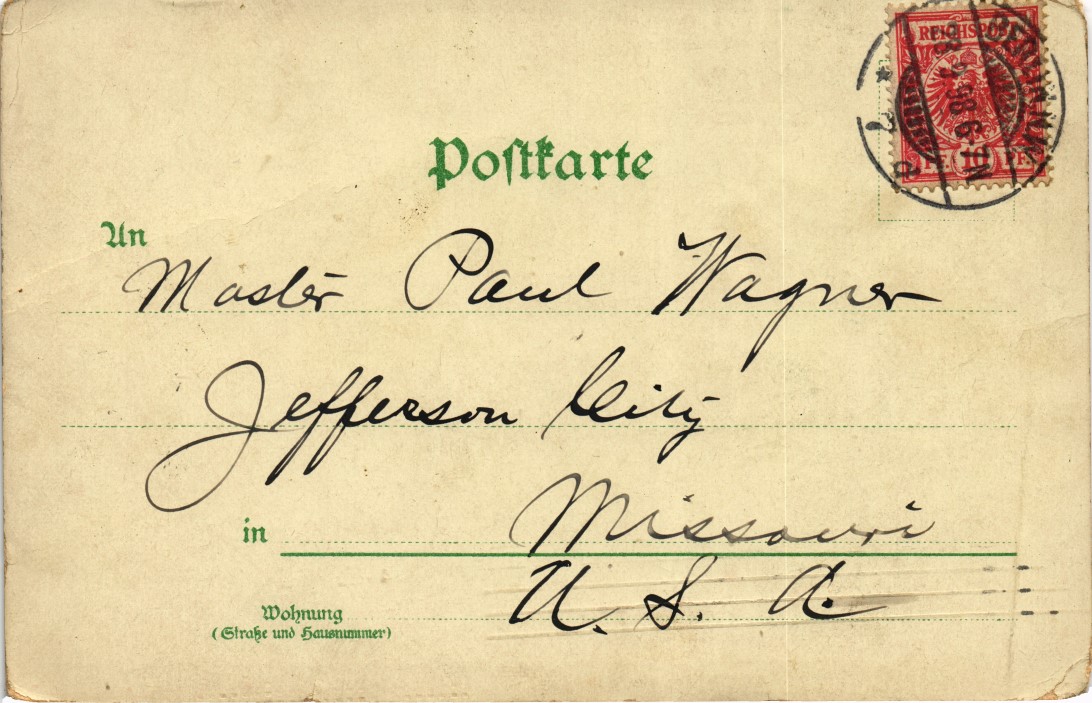 REICHSPOST
PF. 10 PF.
BERLIN, N.W.
Postkarte
An
Master Paul Wagner
Jefferson City
in
Missouri
U. S. A.
Wohnung
(Straße und Hausnummer)